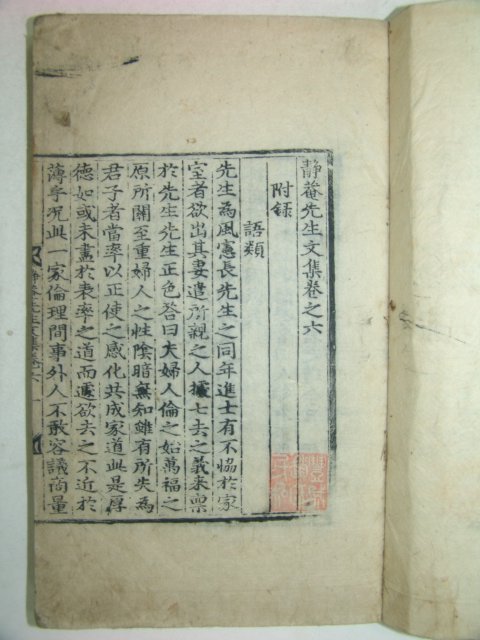 靜菴先生文集卷之六
附錄
語類
先生爲風憲長先生之同年進士有不恊於家
室者欲出其妻遣所親之人據七去之義来稟
於先生先生正色答曰夫婦人倫之始萬福之
原所關至重婦人之性陰暗無知雖有所失爲
君子者當率以正使之感化共成家道此是厚
德如或未盡於表率之道而遽欲去之不近於
薄乎况此一家倫理間事外人不敢容議商量
靜菴先生文集卷六